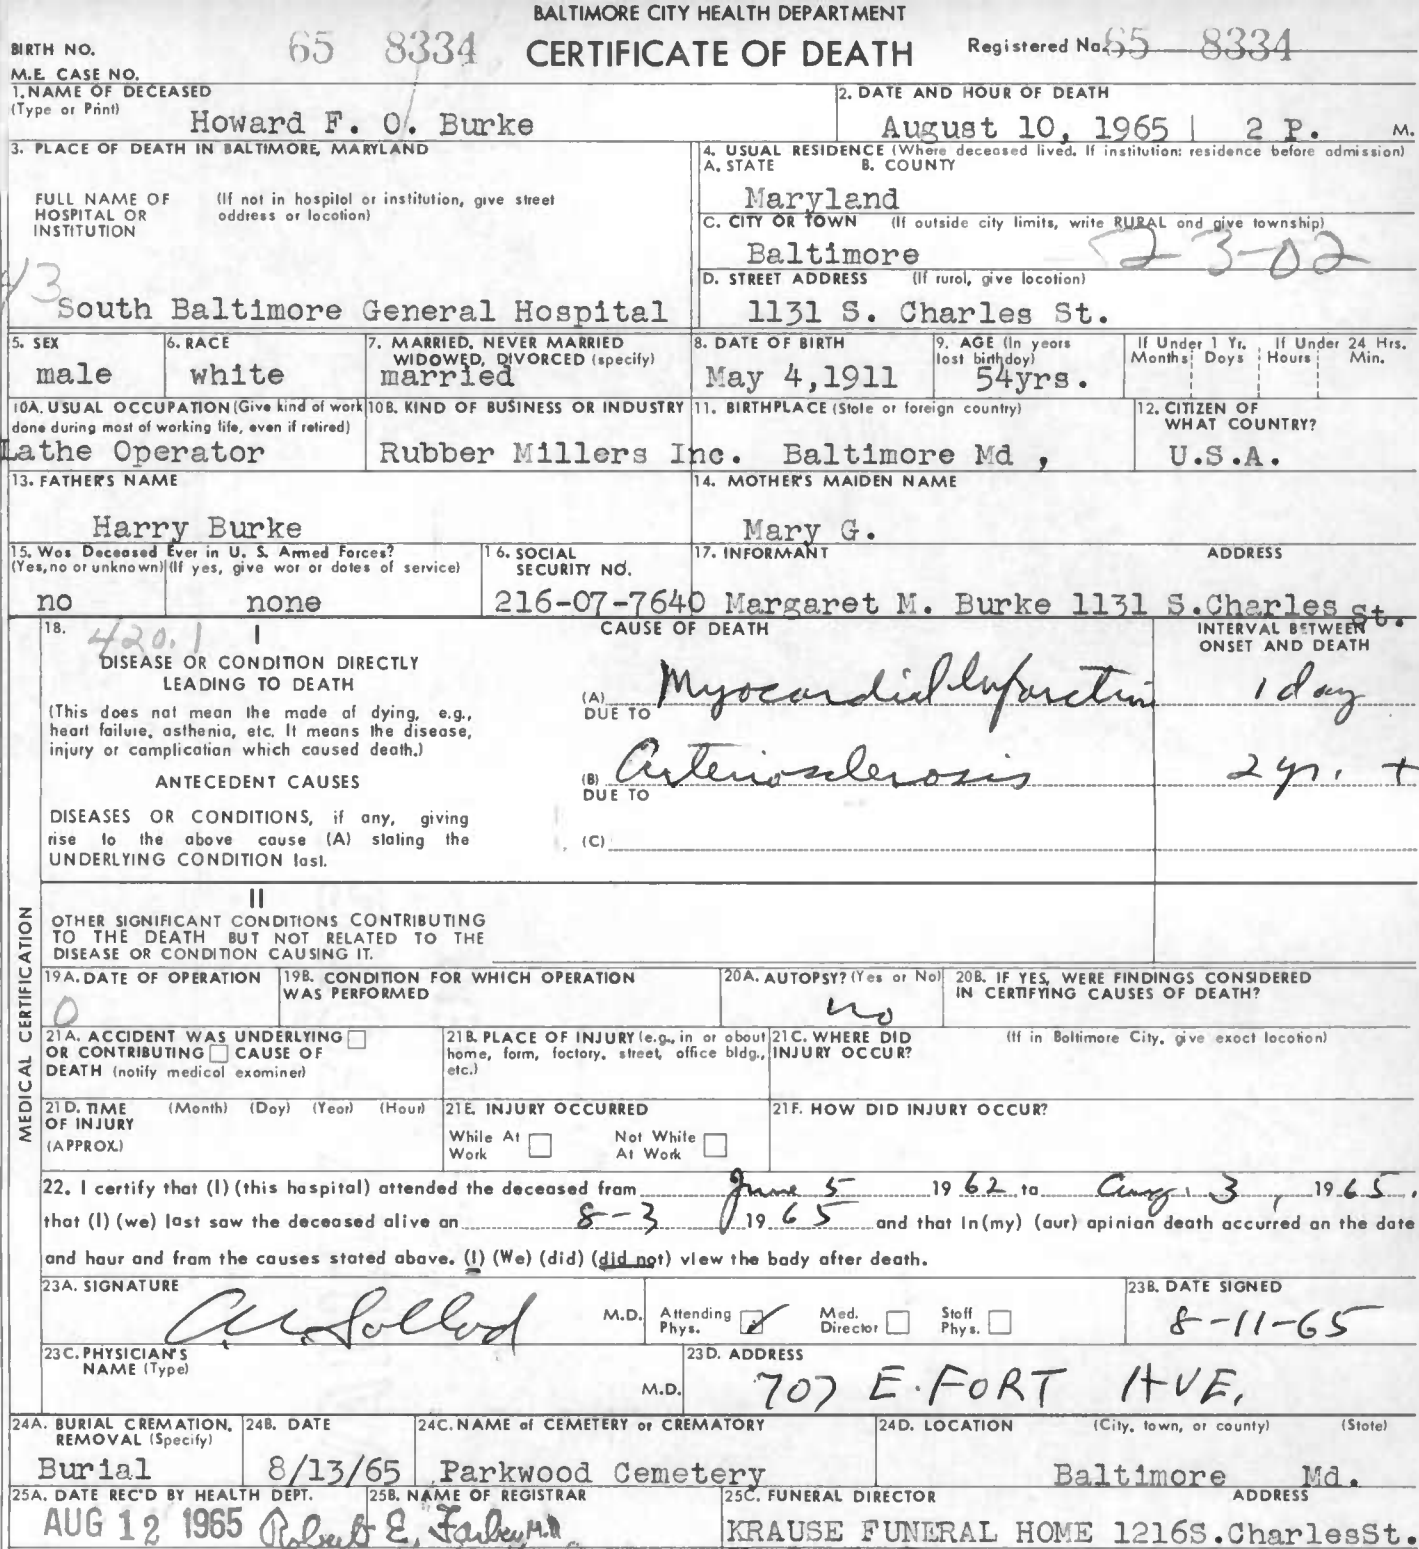 BALTIMORE CITY HEALTH DEPARTMENT
BIRTH NO. 65 8334 CERTIFICATE OF DEATH Registered No. 65 8334
M.E. CASE NO.
1. NAME OF DECEASED
(Type or Print)
Howard F. O. Burke
2. DATE AND HOUR OF DEATH
August 10, 1965 | 2 P. M.
3. PLACE OF DEATH IN BALTIMORE, MARYLAND
FULL NAME OF HOSPITAL OR INSTITUTION
(If not in hospital or institution, give street address or location)
13
South Baltimore General Hospital
4. USUAL RESIDENCE (Where deceased lived. If institution: residence before admission)
A. STATE B. COUNTY
Maryland
C. CITY OR TOWN (If outside city limits, write RURAL and give township)
Baltimore 23-02
D. STREET ADDRESS (If rural, give location)
1131 S. Charles St.
5. SEX
male
6. RACE
white
7. MARRIED, NEVER MARRIED
WIDOWED, DIVORCED (specify)
married
8. DATE OF BIRTH
May 4,1911
9. AGE (In years
last birthday)
54yrs.
If Under 1 Yr.
Months Days
If Under 24 Hrs.
Hours Min.
10A. USUAL OCCUPATION (Give kind of work
done during most of working life, even if retired)
Lathe Operator
10B. KIND OF BUSINESS OR INDUSTRY
Rubber Millers Inc.
11. BIRTHPLACE (State or foreign country)
Baltimore Md ,
12. CITIZEN OF
WHAT COUNTRY?
U.S.A.
13. FATHER'S NAME
Harry Burke
14. MOTHER'S MAIDEN NAME
Mary G.
15. Was Deceased Ever in U. S. Armed Forces?
(Yes, no or unknown) (If yes, give war or dates of service)
no none
16. SOCIAL
SECURITY NO.
216-07-7640
17. INFORMANT ADDRESS
Margaret M. Burke 1131 S.Charles St.
18. 420.1 I
DISEASE OR CONDITION DIRECTLY
LEADING TO DEATH
(This does not mean the mode of dying, e.g.,
heart failure, asthenia, etc. It means the disease,
injury or complication which caused death.)
ANTECEDENT CAUSES
DISEASES OR CONDITIONS, if any, giving
rise to the above cause (A) stating the
UNDERLYING CONDITION last.
CAUSE OF DEATH
INTERVAL BETWEEN
ONSET AND DEATH
(A) Myocardial Infarction 1 day
DUE TO
(B) Arteriosclerosis 2 yr. +
DUE TO
(C)
MEDICAL CERTIFICATION
II
OTHER SIGNIFICANT CONDITIONS CONTRIBUTING
TO THE DEATH BUT NOT RELATED TO THE
DISEASE OR CONDITION CAUSING IT.
19A. DATE OF OPERATION
0
19B. CONDITION FOR WHICH OPERATION
WAS PERFORMED
20A. AUTOPSY? (Yes or No)
no
20B. IF YES, WERE FINDINGS CONSIDERED
IN CERTIFYING CAUSES OF DEATH?
21A. ACCIDENT WAS UNDERLYING
OR CONTRIBUTING CAUSE OF
DEATH (notify medical examiner)
21B. PLACE OF INJURY (e.g., in or about
home, farm, factory, street, office bldg.,
etc.)
21C. WHERE DID (If in Baltimore City, give exact location)
INJURY OCCUR?
21D. TIME (Month) (Day) (Year) (Hour)
OF INJURY
(APPROX.)
21E. INJURY OCCURRED
While At Work Not While At Work
21F. HOW DID INJURY OCCUR?
22. I certify that (I) (this hospital) attended the deceased from June 5 1962 to Aug. 3, 1965,
that (I) (we) last saw the deceased alive on 8-3 1965 and that in (my) (our) opinion death occurred on the date
and hour and from the causes stated above. (I) (We) (did) (did not) view the body after death.
23A. SIGNATURE
M.D. Attending Phys. Med. Director Staff Phys.
23B. DATE SIGNED
8-11-65
23C. PHYSICIAN'S
NAME (Type)
M.D.
23D. ADDRESS
707 E. FORT AVE.
24A. BURIAL CREMATION,
REMOVAL (Specify)
Burial
24B. DATE
8/13/65
24C. NAME of CEMETERY or CREMATORY
Parkwood Cemetery
24D. LOCATION (City, town, or county) (State)
Baltimore Md.
25A. DATE REC'D BY HEALTH DEPT.
AUG 12 1965
25B. NAME OF REGISTRAR
Robert E. Farber M.D.
25C. FUNERAL DIRECTOR ADDRESS
KRAUSE FUNERAL HOME 1216S.CharlesSt.